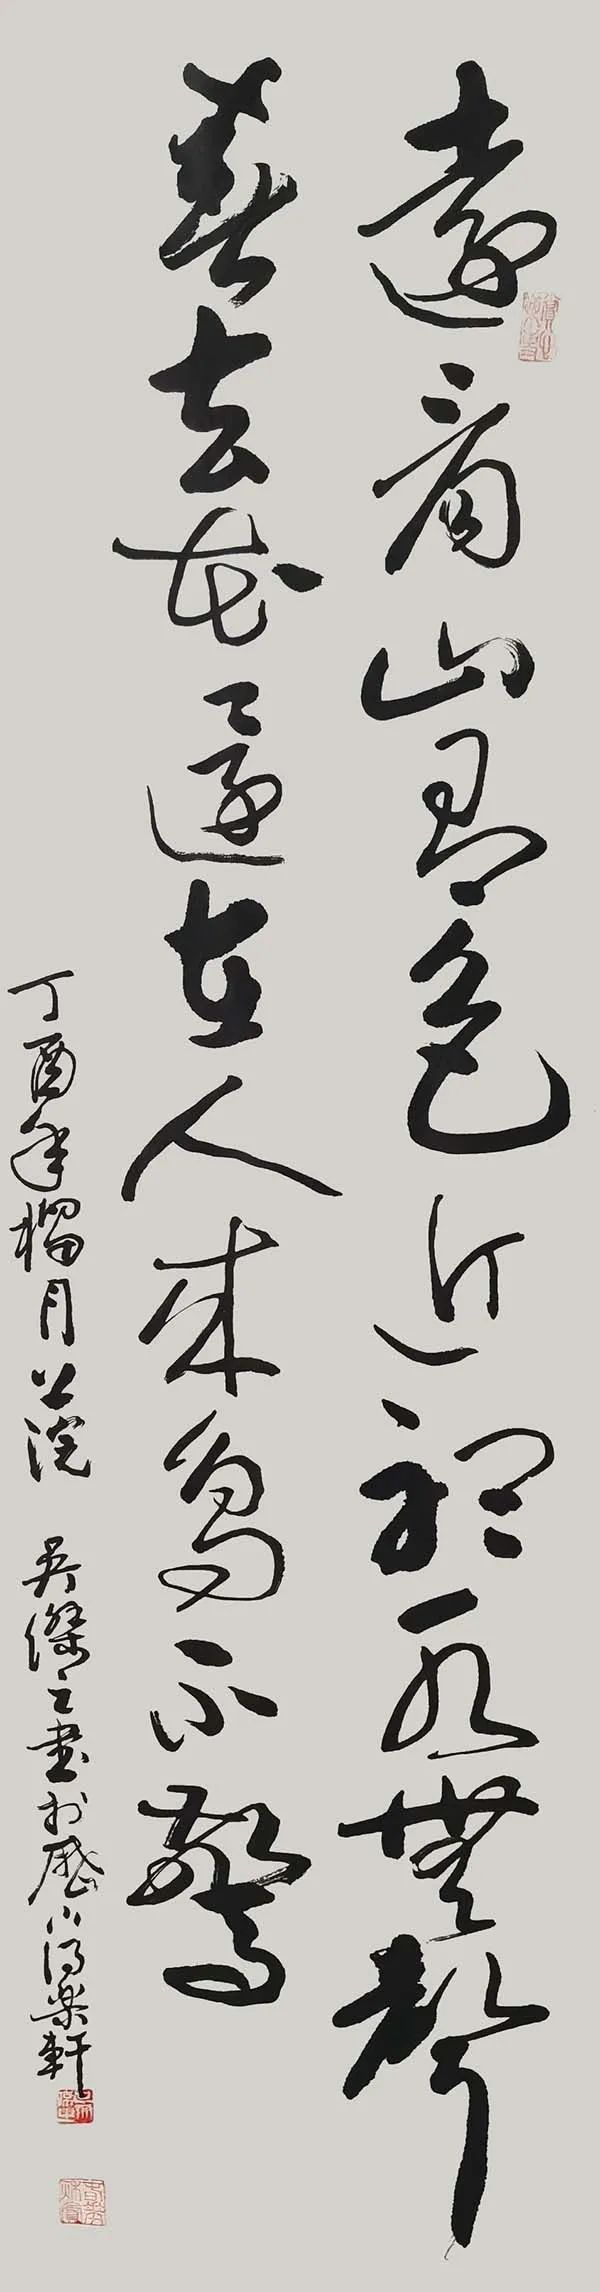 遠看山有色近聽水無聲
春去花還在人來鳥不驚
丁酉年榴月上浣 吳傑之書於歷下得樂軒